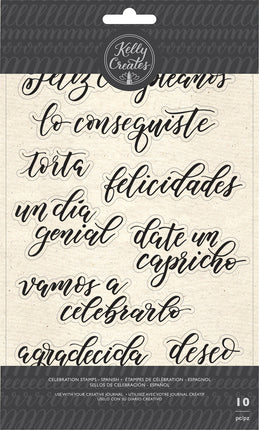 Kelly
Creates
feliz cumpleaños
lo conseguiste
torta
felicidades
un día
genial
date un
capricho
vamos a
celebrarlo
agradecida
deseo
CELEBRATION STAMPS - SPANISH • ÉTAMPES DE CÉLÉBRATION - ESPAGNOL
SELLOS DE CELEBRACIÓN - ESPAÑOL
USE WITH YOUR CREATIVE JOURNAL • UTILISEZ AVEC VOTRE JOURNAL CRÉATIF
ÚSELO CON SU DIARIO CREATIVO
10
pc/pz